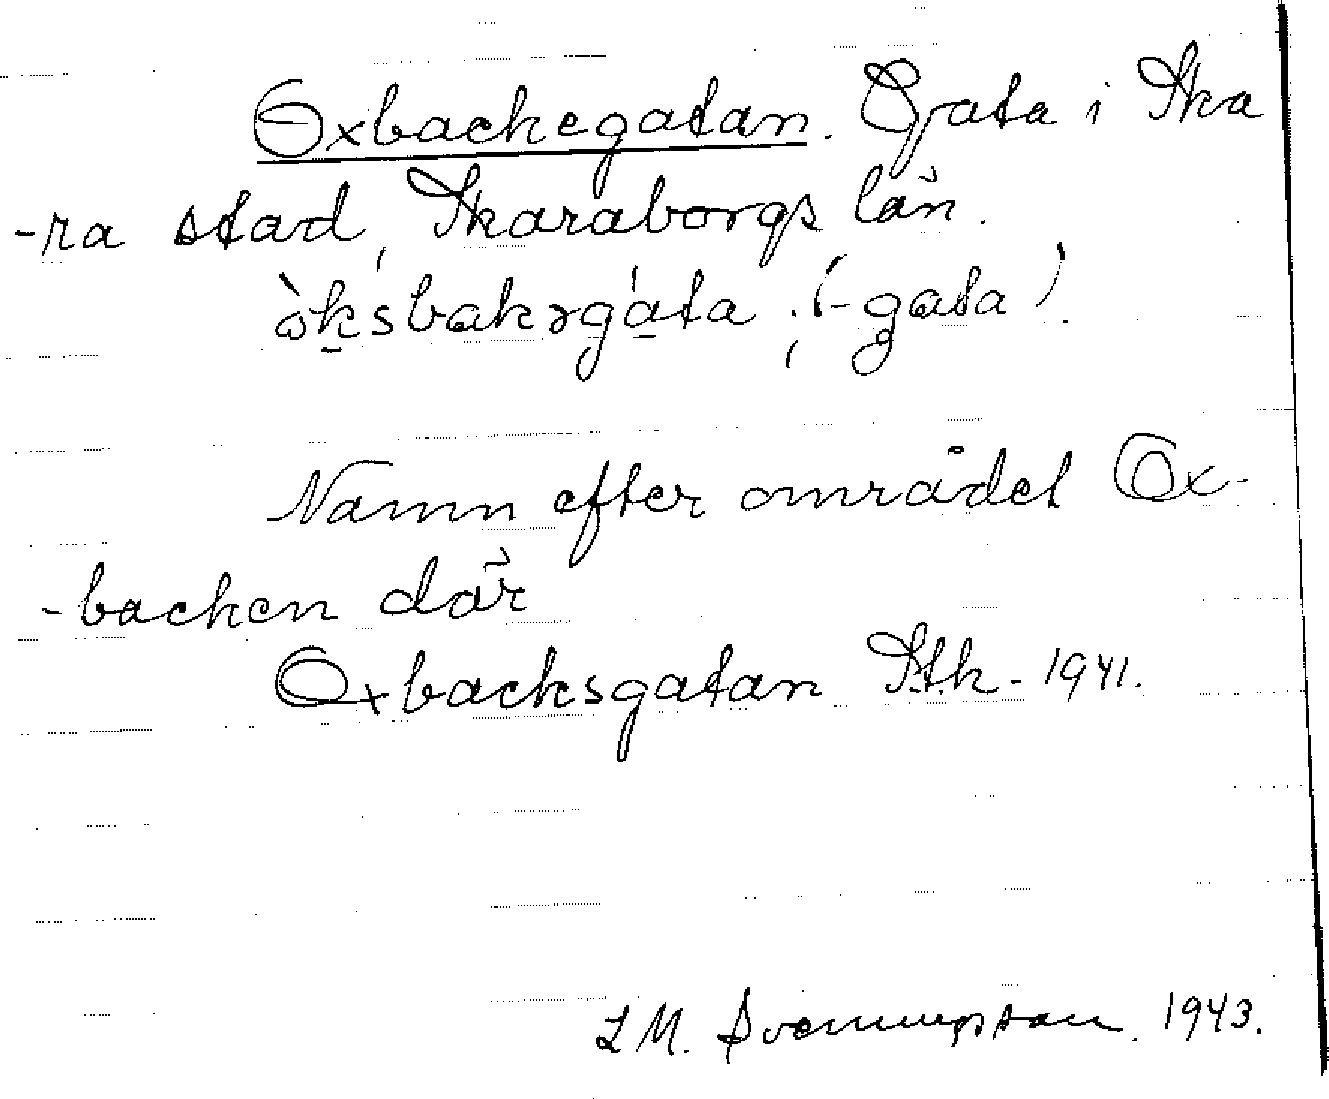 Oxbackegatan. Gata i Ska
-ra stad, Skaraborgs län.
òksbakəgáta, (-gata).
Namn efter området Ox-
-backen där
Oxbacksgatan Stk. 1941.
L M. Svenungsson. 1943.